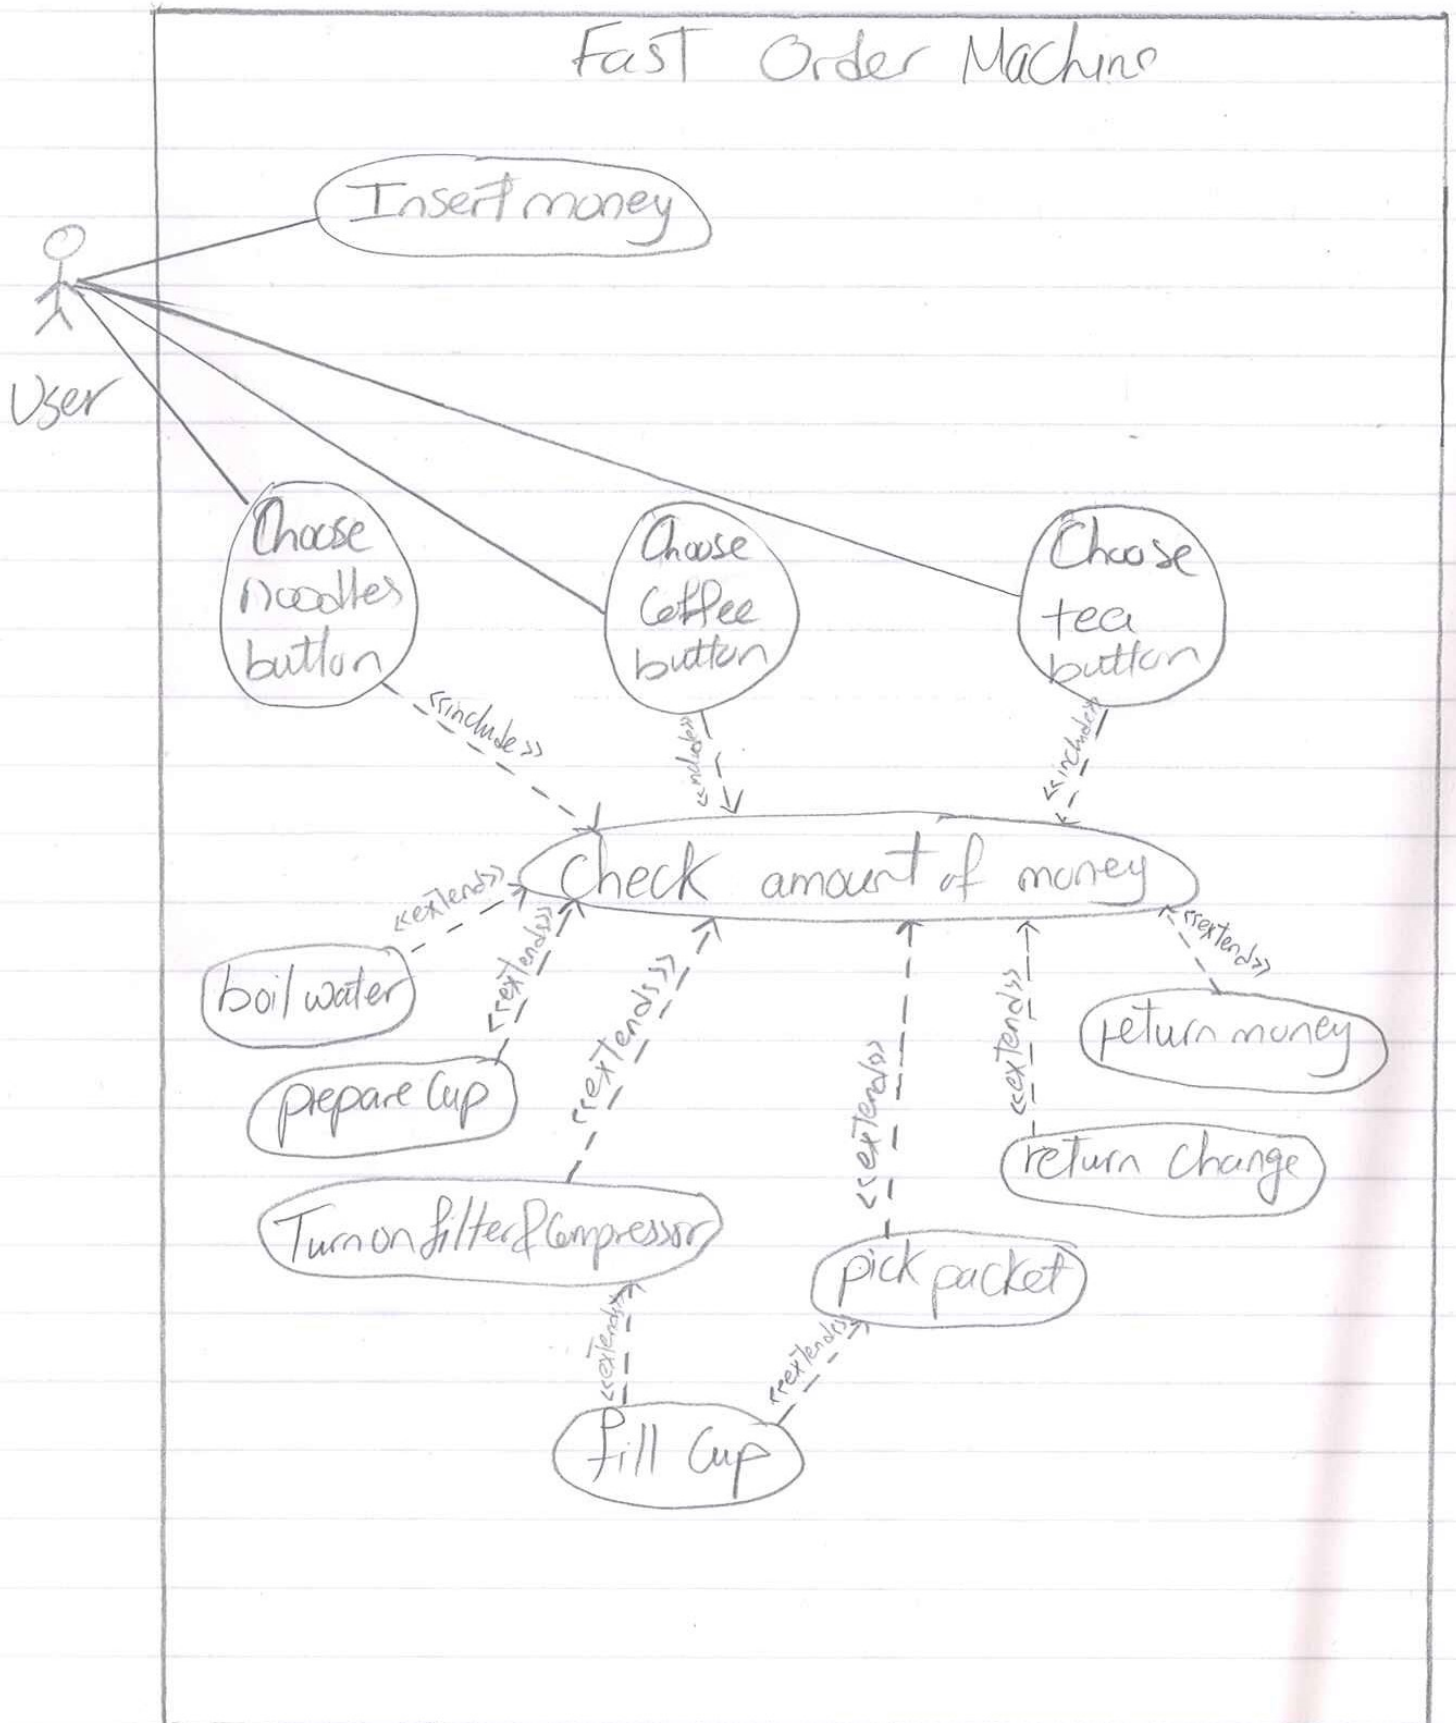 Fast Order Machine
Insert money
User
Choose
Noodles
button
Choose
Coffee
button
Choose
tea
button
<<include>>
<<include>>
<<include>>
Check amount of money
<<extend>>
<<extends>>
<<extends>>
<<extends>>
<<extends>>
<<extend>>
boil water
return money
prepare Cup
return change
Turn on filter & Compressor
pick packet
<<extends>>
<<extends>>
fill Cup